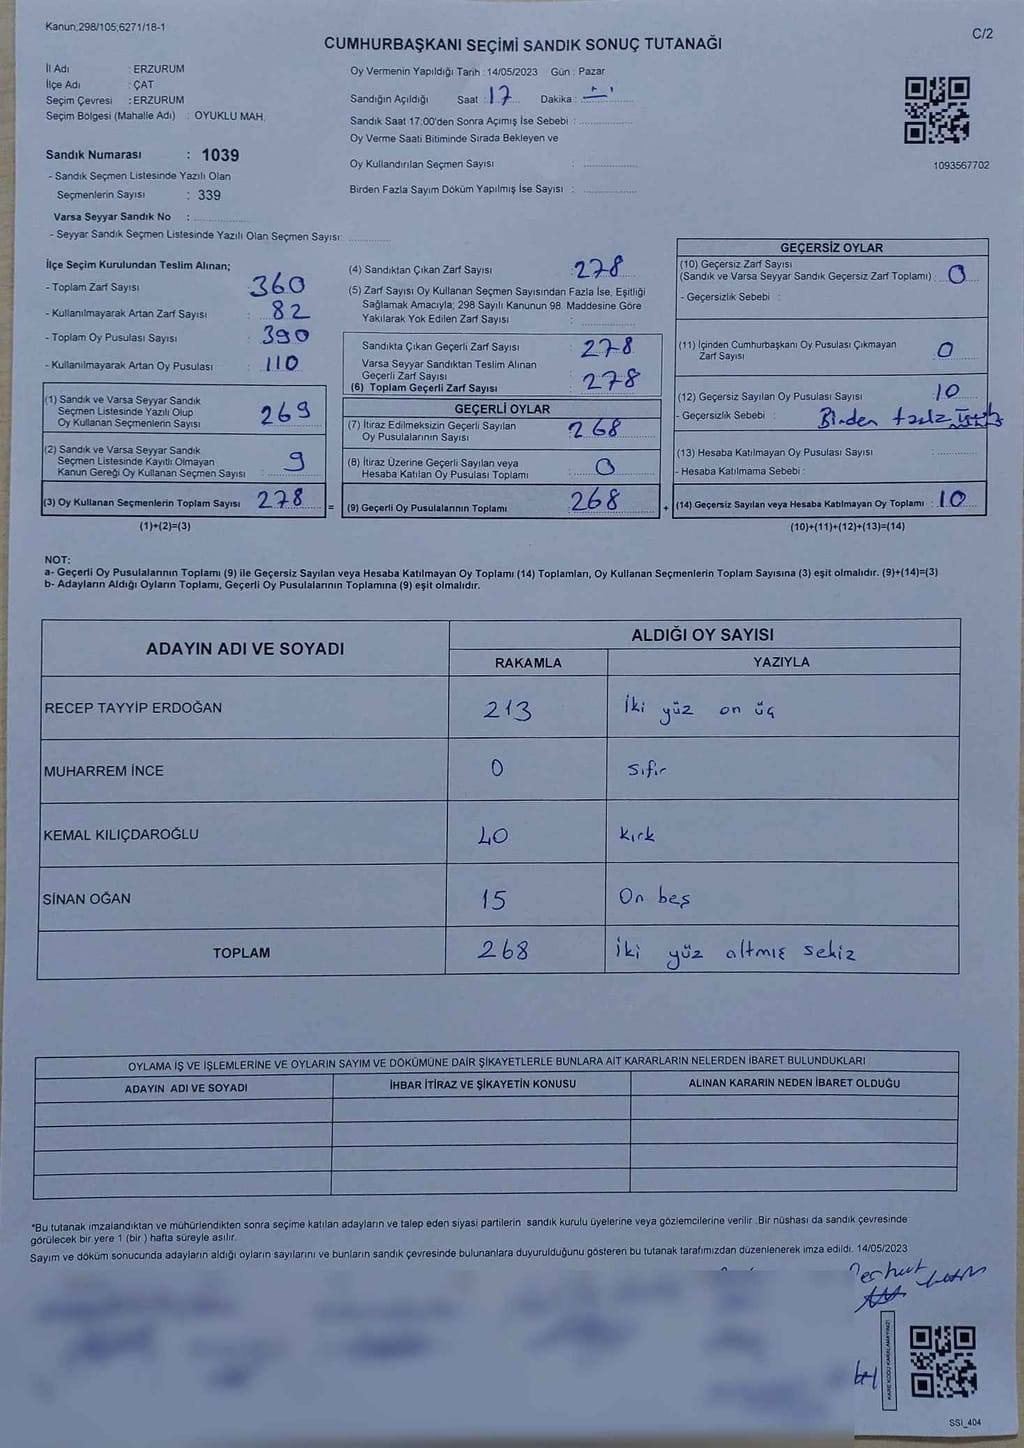 Kanun;298/105;6271/18-1
C/2
CUMHURBAŞKANI SEÇİMİ SANDIK SONUÇ TUTANAĞI
İl Adı : ERZURUM
İlçe Adı : ÇAT
Seçim Çevresi : ERZURUM
Seçim Bölgesi (Mahalle Adı) : OYUKLU MAH.
Sandık Numarası : 1039
- Sandık Seçmen Listesinde Yazılı Olan
Seçmenlerin Sayısı : 339
Varsa Seyyar Sandık No :
- Seyyar Sandık Seçmen Listesinde Yazılı Olan Seçmen Sayısı:
Oy Vermenin Yapıldığı Tarih : 14/05/2023 Gün : Pazar
Sandığın Açıldığı Saat : 17 Dakika :
Sandık Saat 17:00'den Sonra Açımış İse Sebebi :
Oy Verme Saati Bitiminde Sırada Bekleyen ve
Oy Kullandırılan Seçmen Sayısı :
Birden Fazla Sayım Döküm Yapılmış İse Sayısı :
1093567702
İlçe Seçim Kurulundan Teslim Alınan;
- Toplam Zarf Sayısı : 360
- Kullanılmayarak Artan Zarf Sayısı : 82
- Toplam Oy Pusulası Sayısı : 390
- Kullanılmayarak Artan Oy Pusulası : 110
(1) Sandık ve Varsa Seyyar Sandık
Seçmen Listesinde Yazılı Olup
Oy Kullanan Seçmenlerin Sayısı : 269
(2) Sandık ve Varsa Seyyar Sandık
Seçmen Listesinde Kayıtlı Olmayan
Kanun Gereği Oy Kullanan Seçmen Sayısı : 9
(3) Oy Kullanan Seçmenlerin Toplam Sayısı : 278
(1)+(2)=(3)
=
(4) Sandıktan Çıkan Zarf Sayısı : 278
(5) Zarf Sayısı Oy Kullanan Seçmen Sayısından Fazla İse, Eşitliği
Sağlamak Amacıyla; 298 Sayılı Kanunun 98. Maddesine Göre
Yakılarak Yok Edilen Zarf Sayısı :
Sandıkta Çıkan Geçerli Zarf Sayısı : 278
Varsa Seyyar Sandıktan Teslim Alınan
Geçerli Zarf Sayısı
(6) Toplam Geçerli Zarf Sayısı : 278
GEÇERLİ OYLAR
(7) İtiraz Edilmeksizin Geçerli Sayılan
Oy Pusulalarının Sayısı : 268
(8) İtiraz Üzerine Geçerli Sayılan veya
Hesaba Katılan Oy Pusulaları Toplamı : 0
(9) Geçerli Oy Pusulalarının Toplamı : 268
+
GEÇERSİZ OYLAR
(10) Geçersiz Zarf Sayısı
(Sandık ve Varsa Seyyar Sandık Geçersiz Zarf Toplamı) : 0
- Geçersizlik Sebebi :
(11) İçinden Cumhurbaşkanı Oy Pusulası Çıkmayan
Zarf Sayısı : 0
(12) Geçersiz Sayılan Oy Pusulası Sayısı : 10
- Geçersizlik Sebebi : Birden fazla
(13) Hesaba Katılmayan Oy Pusulası Sayısı :
- Hesaba Katılmama Sebebi :
(14) Geçersiz Sayılan veya Hesaba Katılmayan Oy Toplamı : 10
(10)+(11)+(12)+(13)=(14)
NOT:
a- Geçerli Oy Pusulalarının Toplamı (9) ile Geçersiz Sayılan veya Hesaba Katılmayan Oy Toplamı (14) Toplamları, Oy Kullanan Seçmenlerin Toplam Sayısına (3) eşit olmalıdır. (9)+(14)=(3)
b- Adayların Aldığı Oyların Toplamı, Geçerli Oy Pusulalarının Toplamına (9) eşit olmalıdır.
ADAYIN ADI VE SOYADI
ALDIĞI OY SAYISI
RAKAMLA YAZIYLA
RECEP TAYYİP ERDOĞAN 213 İki yüz on üç
MUHARREM İNCE 0 Sıfır
KEMAL KILIÇDAROĞLU 40 kırk
SİNAN OĞAN 15 On beş
TOPLAM 268 İki yüz altmış sekiz
OYLAMA İŞ VE İŞLEMLERİNE VE OYLARIN SAYIM VE DÖKÜMÜNE DAİR ŞİKAYETLERLE BUNLARA AİT KARARLARIN NELERDEN İBARET BULUNDUKLARI
ADAYIN ADI VE SOYADI İHBAR İTİRAZ VE ŞİKAYETİN KONUSU ALINAN KARARIN NEDEN İBARET OLDUĞU
*Bu tutanak imzalandıktan ve mühürlendikten sonra seçime katılan adayların ve talep eden siyasi partilerin sandık kurulu üyelerine veya gözlemcilerine verilir. Bir nüshası da sandık çevresinde
görülecek bir yere 1 (bir ) hafta süreyle asılır.
Sayım ve döküm sonucunda adayların aldığı oyların sayılarını ve bunların sandık çevresinde bulunanlara duyurulduğunu gösteren bu tutanak tarafımızdan düzenlenerek imza edildi. 14/05/2023
KARE KODU KARALAMAYINIZ!
SSI_404